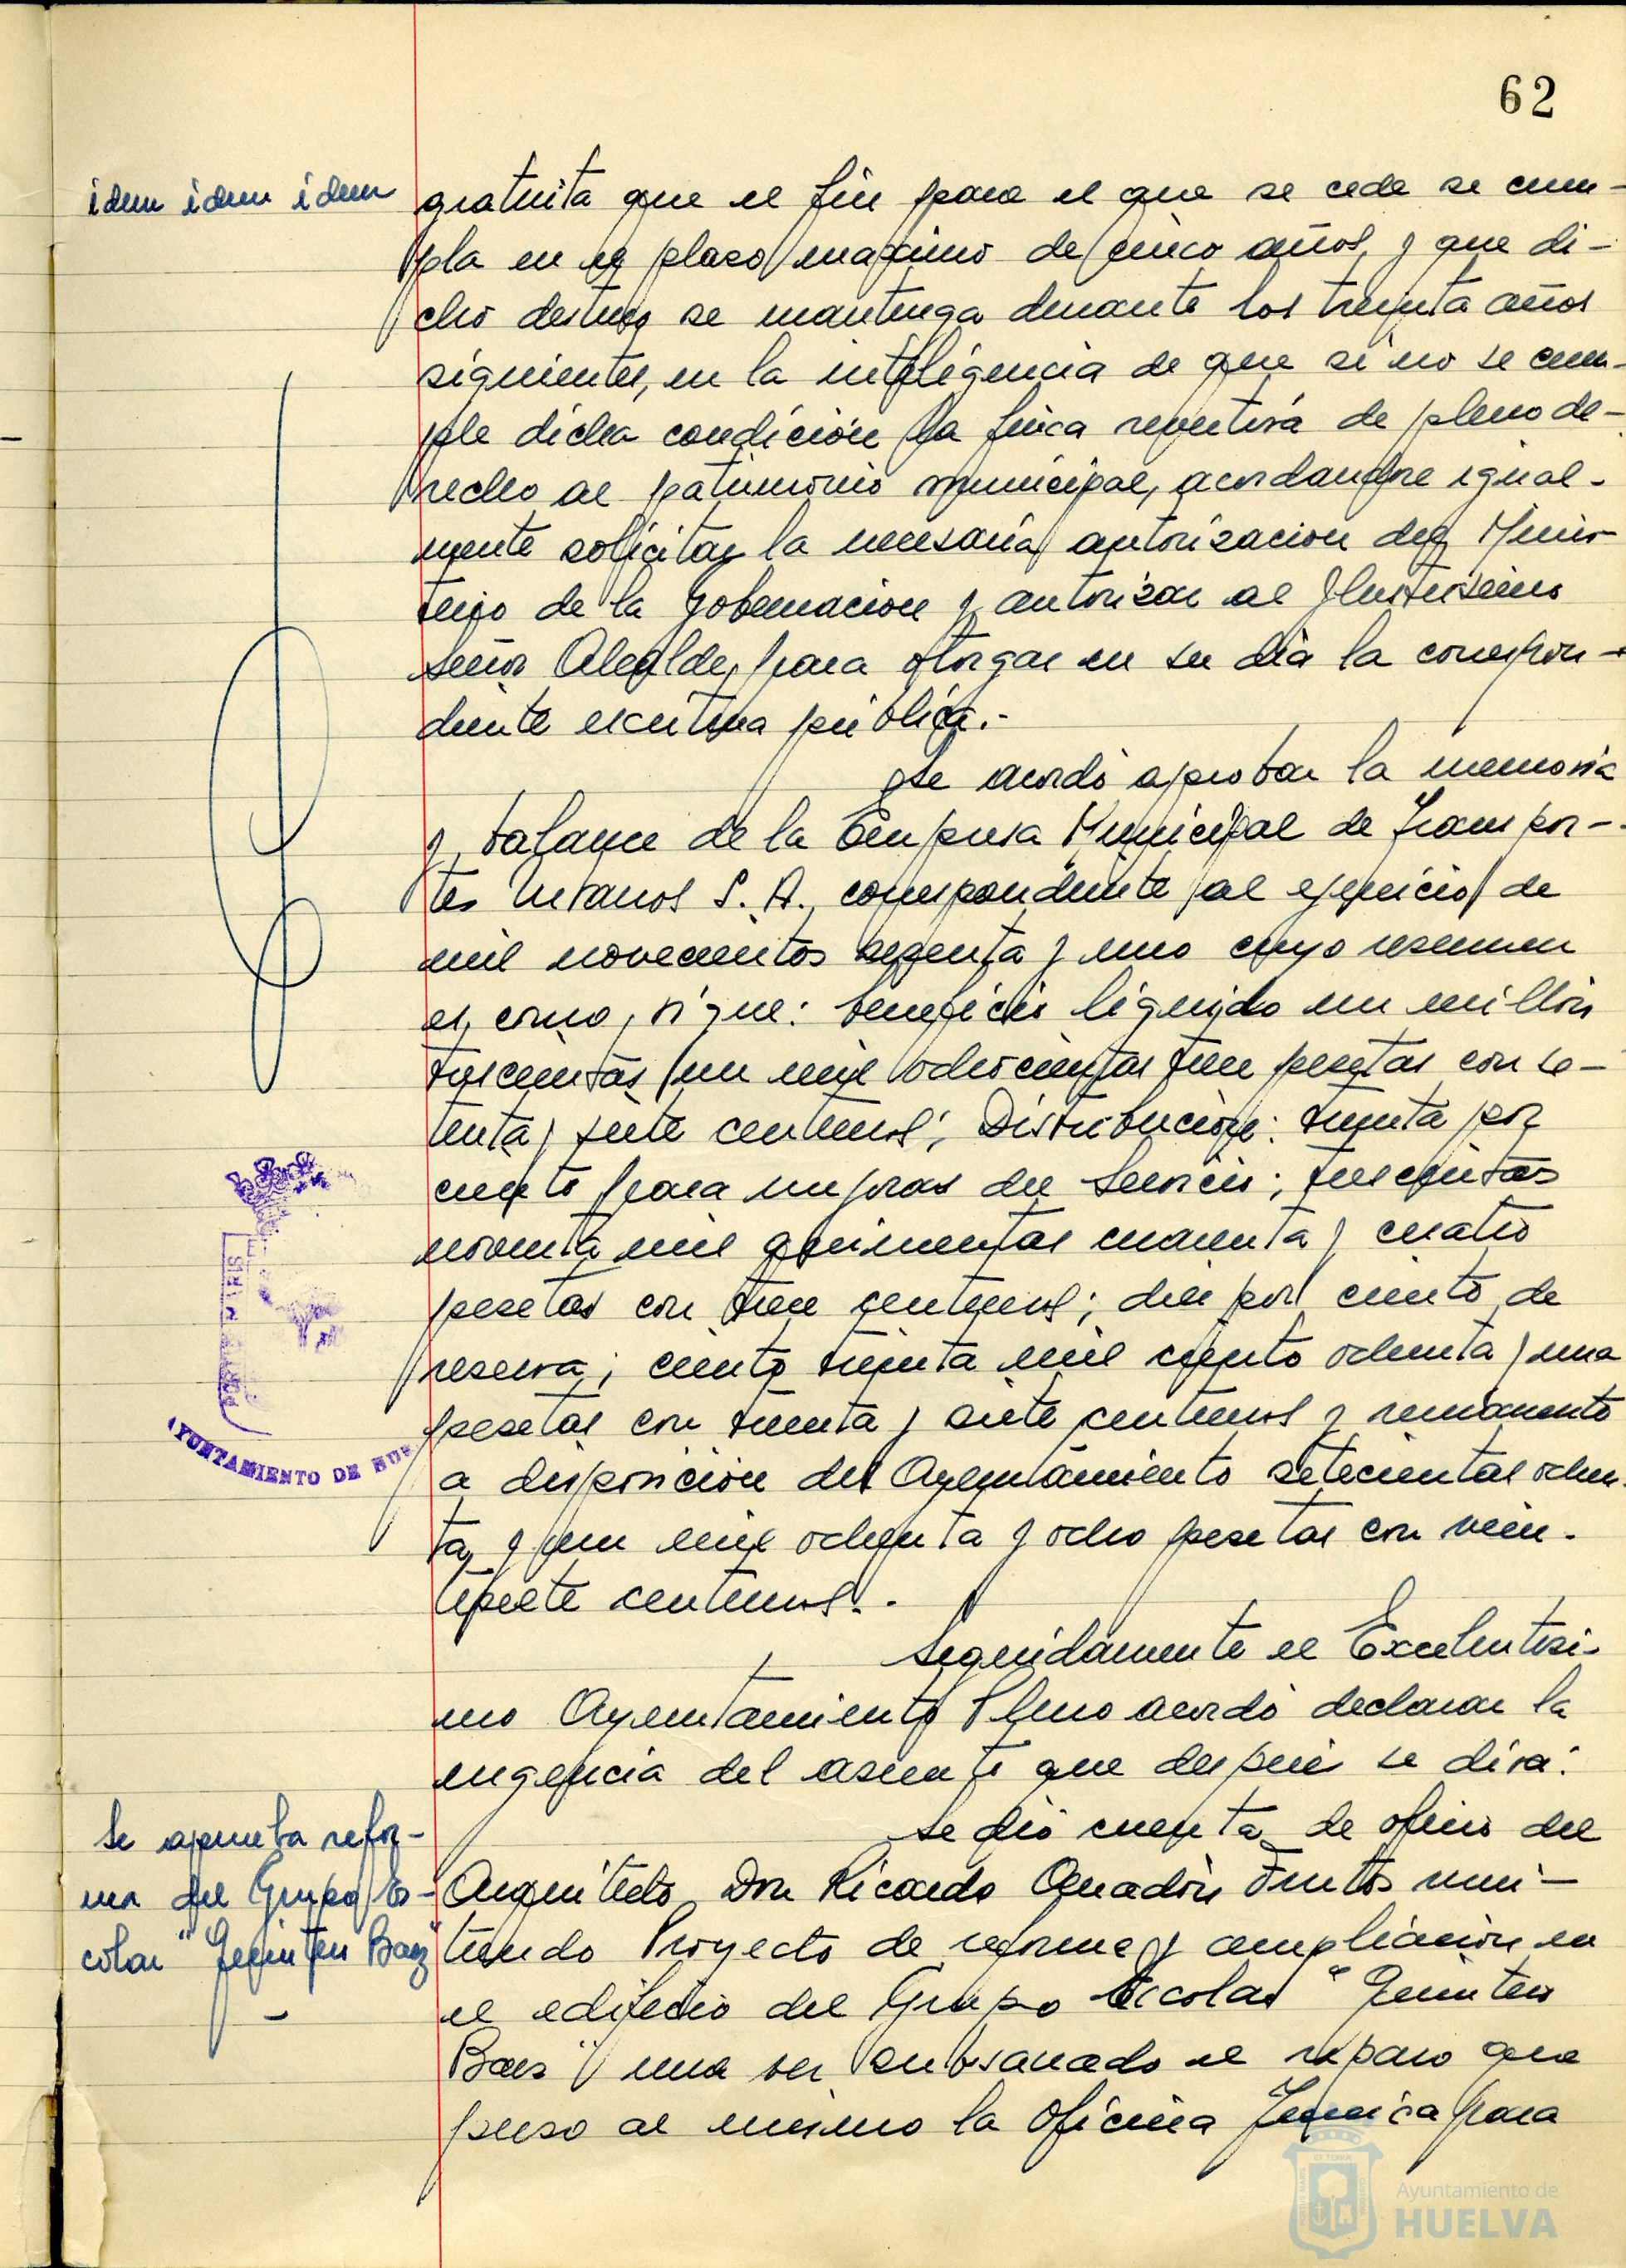 62
idem idem idem
gratuita que el fin para el que se cede se cum-
pla en el plazo maximo de cinco años, y que di-
cho destino se mantenga durante los treinta años
siguientes, en la inteligencia de que si no se cum-
ple dicha condición la finca revertirá de pleno de-
recho al patrimonio municipal, acordandose igual-
mente solicitar la necesaria autorizacion del Minis-
terio de la Gobernacion y autorizar al Ilustrisimo
Señor Alcalde, para otorgar en su dia la correspon-
diente escritura pública.-
Se acordó aprobar la memoria
y balance de la Empresa Municipal de Transpor-
tes Urbanos S. A., correspondiente al ejercicio de
mil novecientos sesenta y uno cuyo resumen
es como sigue: beneficio liquido un millon
trescientas un mil ochocientas trece pesetas con se-
tenta y siete centimos; Distribucion: treinta por
ciento para mejoras del Servicio; trescientas
noventa mil quinientas cuarenta y cuatro
pesetas con trece centimos; diez por ciento de
reserva; ciento treinta mil ciento ochenta y una
pesetas con treinta y siete centimos y remanente
a disposicion del Ayuntamiento setecientas ochen-
ta y un mil ochenta y ocho pesetas con vein-
tisiete centimos.-
Seguidamente el Excelentisi-
mo Ayuntamiento Pleno acordó declarar la
urgencia del asunto que despues se dira:
Se aprueba refor-
ma del Grupo Es-
colar "Quintero Baez"
Se dió cuenta de oficio del
Arquitecto Don Ricardo Anadón Frutos remi-
tiendo Proyecto de reforma y ampliacion en
el edificio del Grupo Escolar "Quintero
Baez" una vez subsanado el reparo que
puso al mismo la Oficina Tecnica para
AYUNTAMIENTO DE HUE
Ayuntamiento de
HUELVA